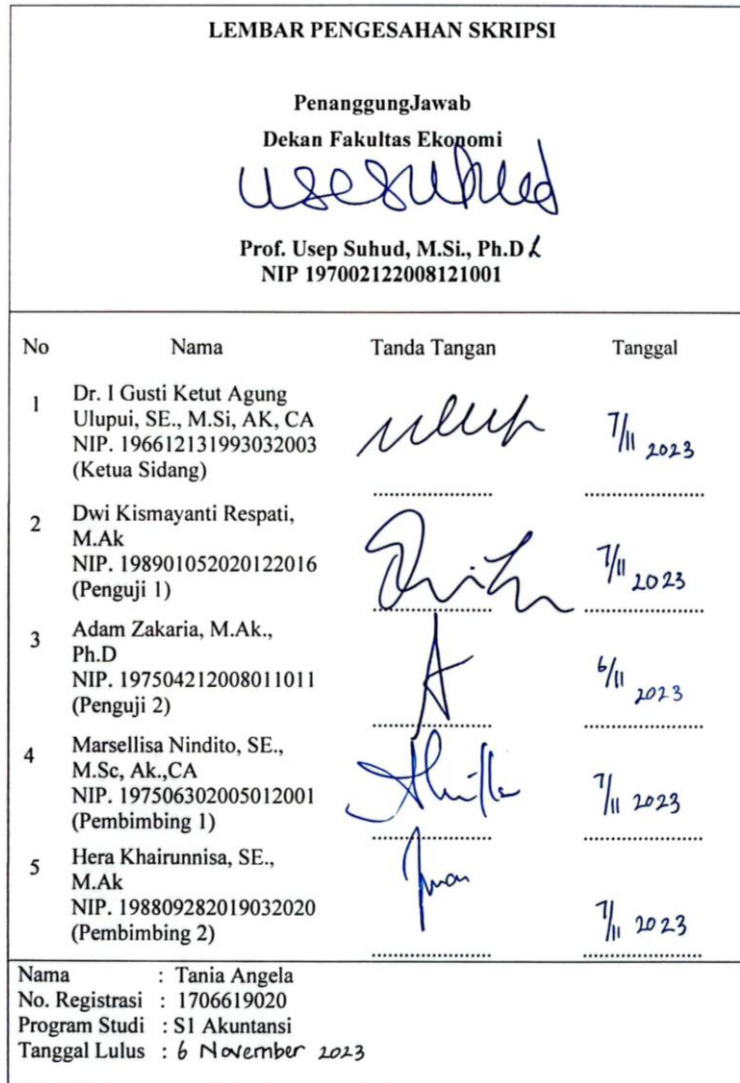 LEMBAR PENGESAHAN SKRIPSI
PenanggungJawab
Dekan Fakultas Ekonomi
usesuhud
Prof. Usep Suhud, M.Si., Ph.D
NIP 197002122008121001
No Nama Tanda Tangan Tanggal
1 Dr. I Gusti Ketut Agung
Ulupui, SE., M.Si, AK, CA
NIP. 196612131993032003
(Ketua Sidang)
7/11 2023
2 Dwi Kismayanti Respati,
M.Ak
NIP. 198901052020122016
(Penguji 1)
7/11 2023
3 Adam Zakaria, M.Ak.,
Ph.D
NIP. 197504212008011011
(Penguji 2)
6/11 2023
4 Marsellisa Nindito, SE.,
M.Sc, Ak.,CA
NIP. 197506302005012001
(Pembimbing 1)
7/11 2023
5 Hera Khairunnisa, SE.,
M.Ak
NIP. 198809282019032020
(Pembimbing 2)
7/11 2023
Nama : Tania Angela
No. Registrasi : 1706619020
Program Studi : S1 Akuntansi
Tanggal Lulus : 6 November 2023